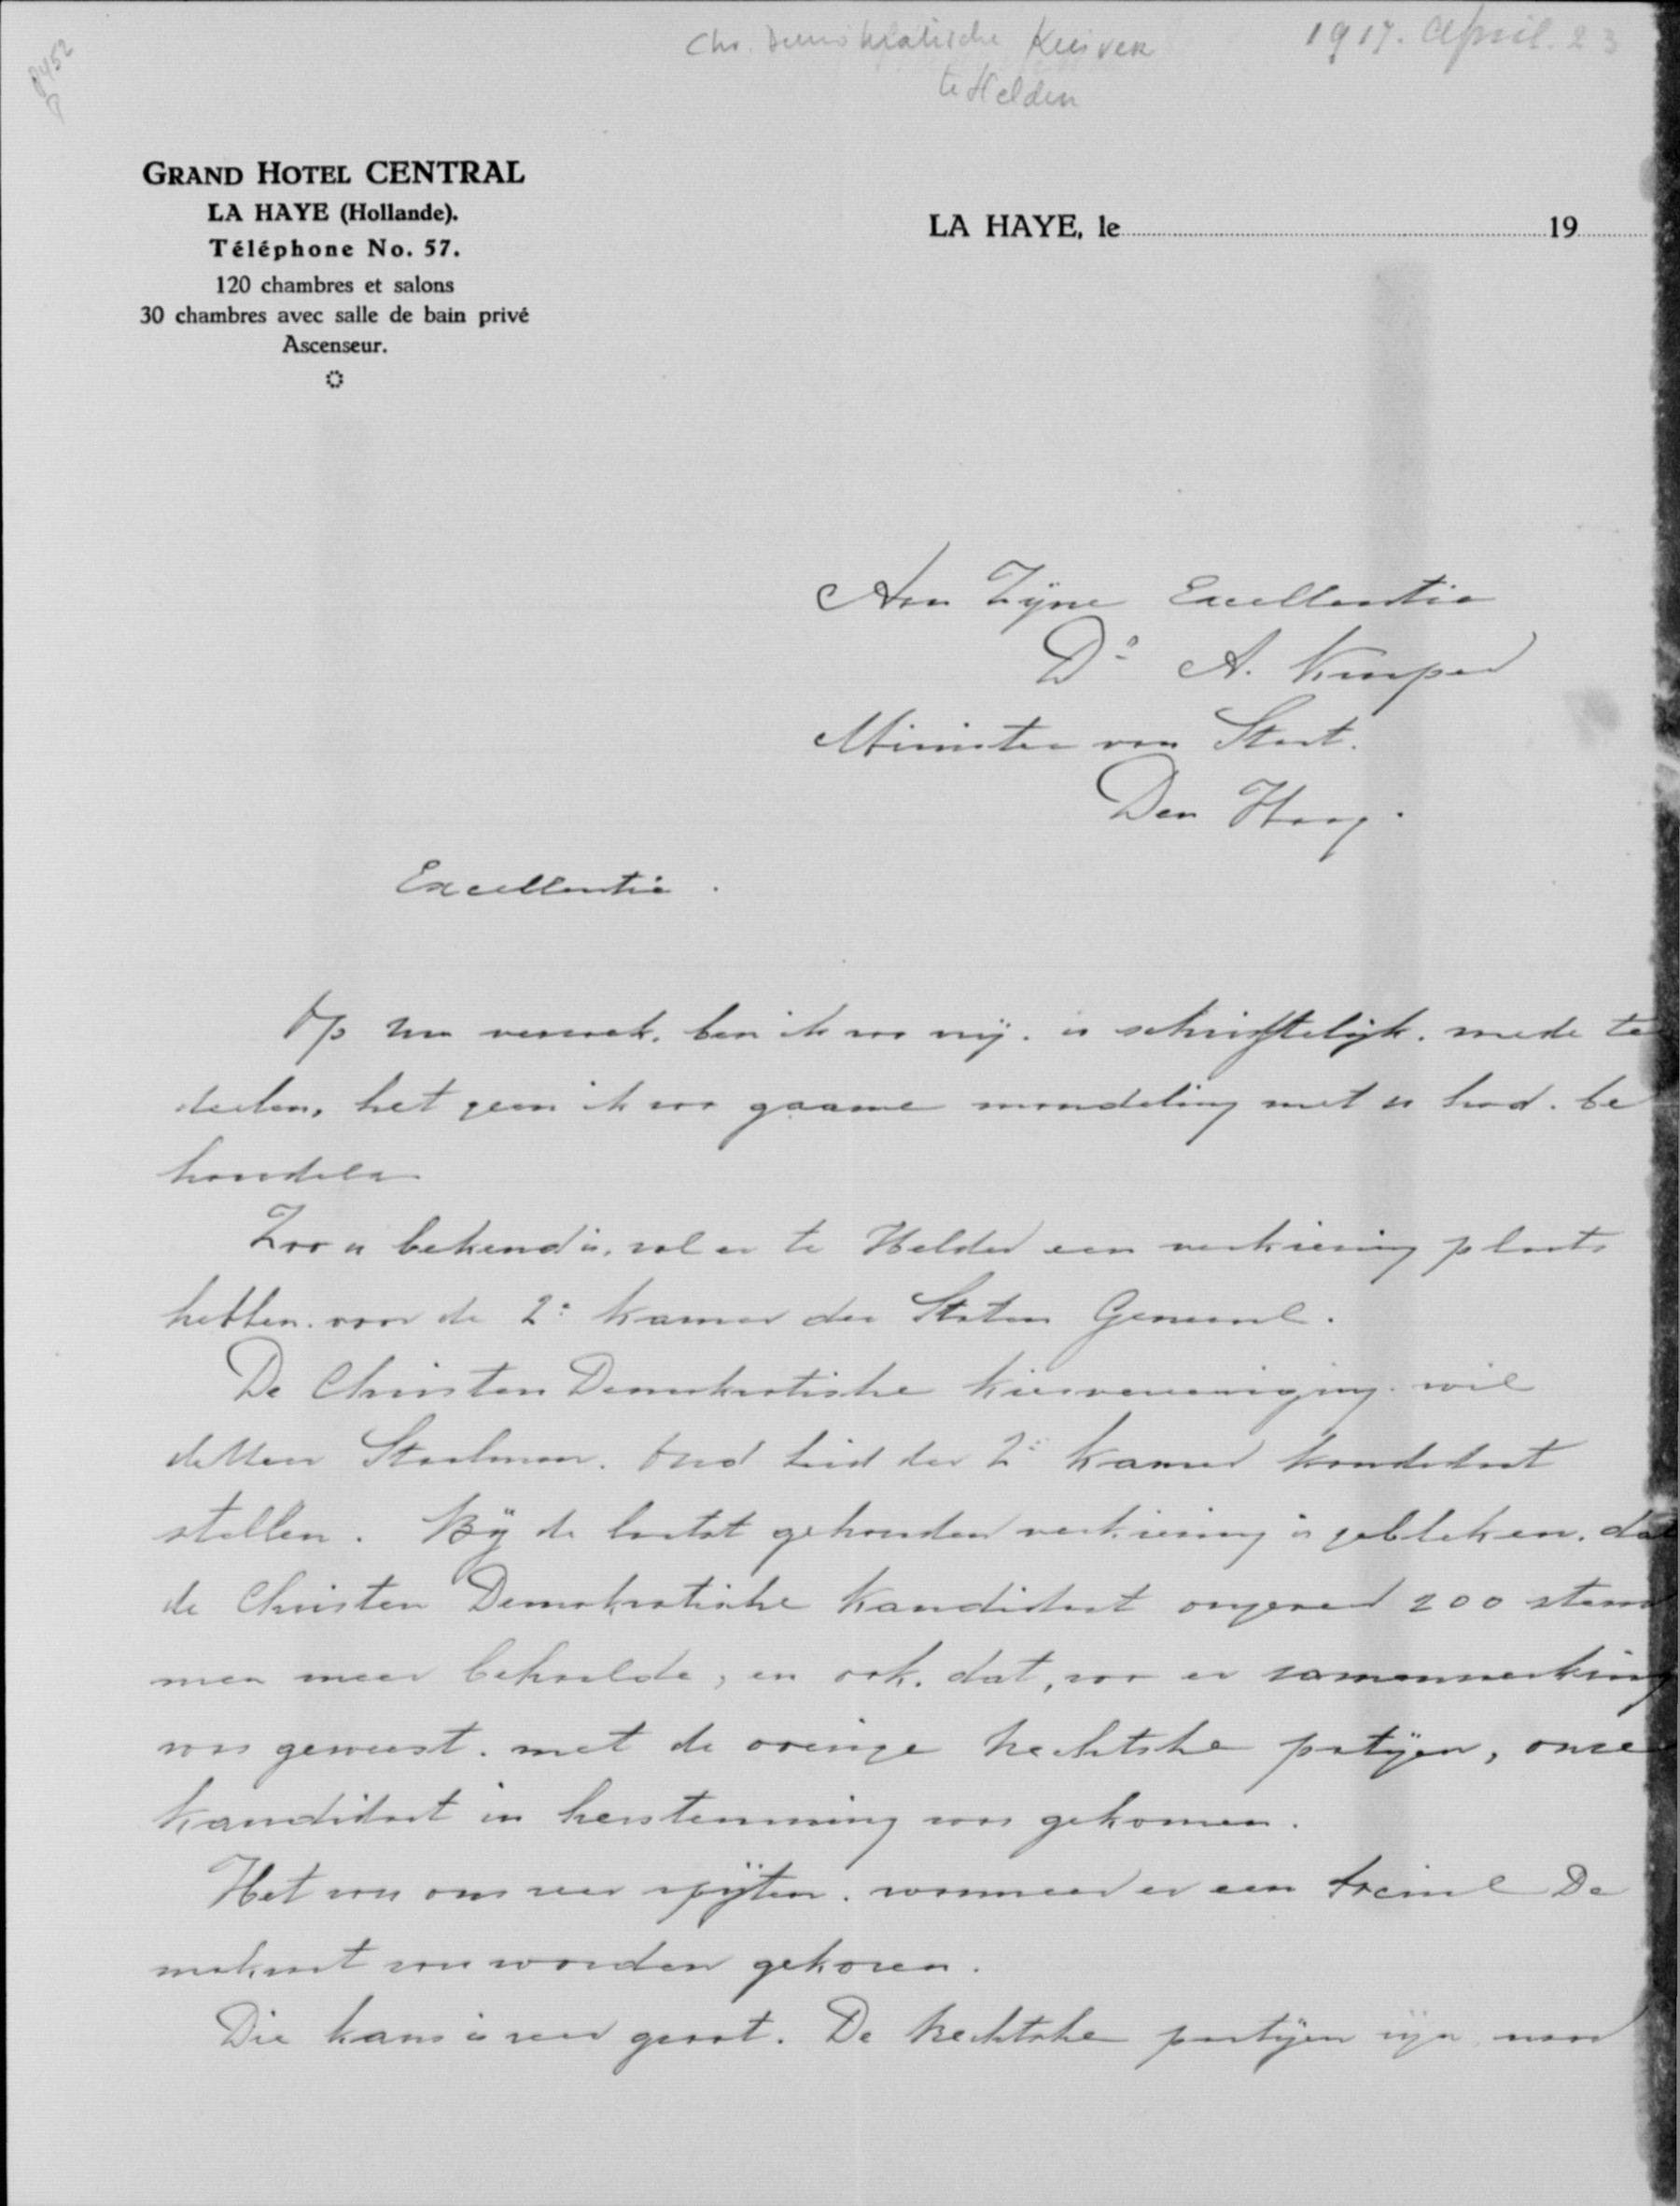 8452
Chr. Demokratische Kiesver.
te Helder
1917. April. 23
GRAND HOTEL CENTRAL
LA HAYE (Hollande).
Téléphone No. 57.
120 chambres et salons
30 chambres avec salle de bain privé
Ascenseur.
LA HAYE, le 19
Aan Zijne Excellentie
Dr A. Kuyper
Minister van Staat.
Den Haag.
Excellentie.
Op Uw verzoek. ben ik zoo vrij. u schriftelijk. mede te
deelen, het geen ik zoo gaarne mondeling met u had. be
handeld
Zoo u bekend is, zal er te Helder een verkiezing plaats
hebben. voor de 2e Kamer der Staten Generaal.
De Christen Demokratische kiesvereeniging. wil
de Heer Staalman. Oud Lid der 2e Kamer kandidaat
stellen. Bij de laatst gehouden verkiezing is gebleken. dat
de Christen Demokratische Kandidaat ongeveer 200 stem
men meer behaalde, en ook. dat, zoo er samenwerking
was geweest. met de overige Rechtsche partijen, onze
kandidaat in herstemming was gekomen.
Het zou ons zeer spijten. wanneer er een Sociaal De
mokraat zou worden gekozen.
Die kans is zeer groot. De Rechtsche partijen zijn